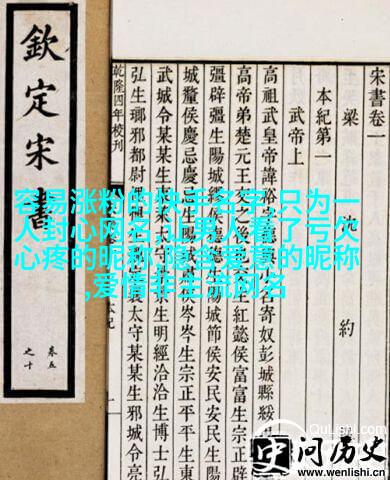 欽定宋書
卷五之十
宋書卷一
梁 沈 約
本紀第一
武帝上
高祖武皇帝諱裕字德輿小名寄奴彭城縣綏
高帝弟楚元王交之後也交生紅懿侯富富生宗正辟
彊辟彊生陽城繆侯德德生陽城節侯安民安民生陽
城釐侯慶忌慶忌生陽城肅侯岑岑生宗正平平生東
武城令某某生東萊太守某某生明經洽洽生博士弘
弘生瑯邪都尉悝悝生魏定襄太守某某生邪城令亮
乾隆四年校刊
容易涨粉的快手名字,只为一
人封心网名,让男人看了亏欠
心疼的昵称,隐含爱意的昵称
,爱情非主流网名
QuLishi.com
史问历史
www.wenlishi.cn